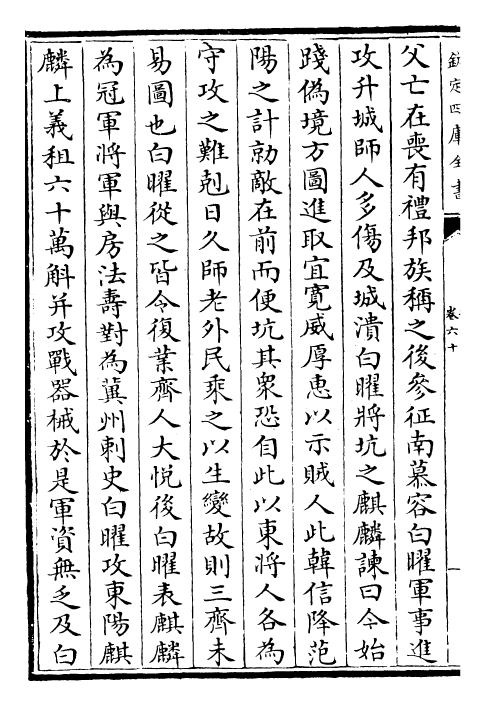 欽定四庫全書
卷六十
父亡在喪有禮邦族稱之後參征南慕容白曜軍事進
攻升城師人多傷及城潰白曜將坑之麒麟諫曰今始
踐偽境方圖進取宜寬威厚惠以示賊人此韓信降范
陽之計勍敵在前而便坑其衆恐自此以東將人各為
守攻之難剋日久師老外民乘之以生變故則三齊未
易圖也白曜從之皆令復業齊人大悅後白曜表麒麟
為冠軍將軍與房法壽對為冀州刺史白曜攻東陽麒
麟上義租六十萬斛并攻戰器械於是軍資無乏及白